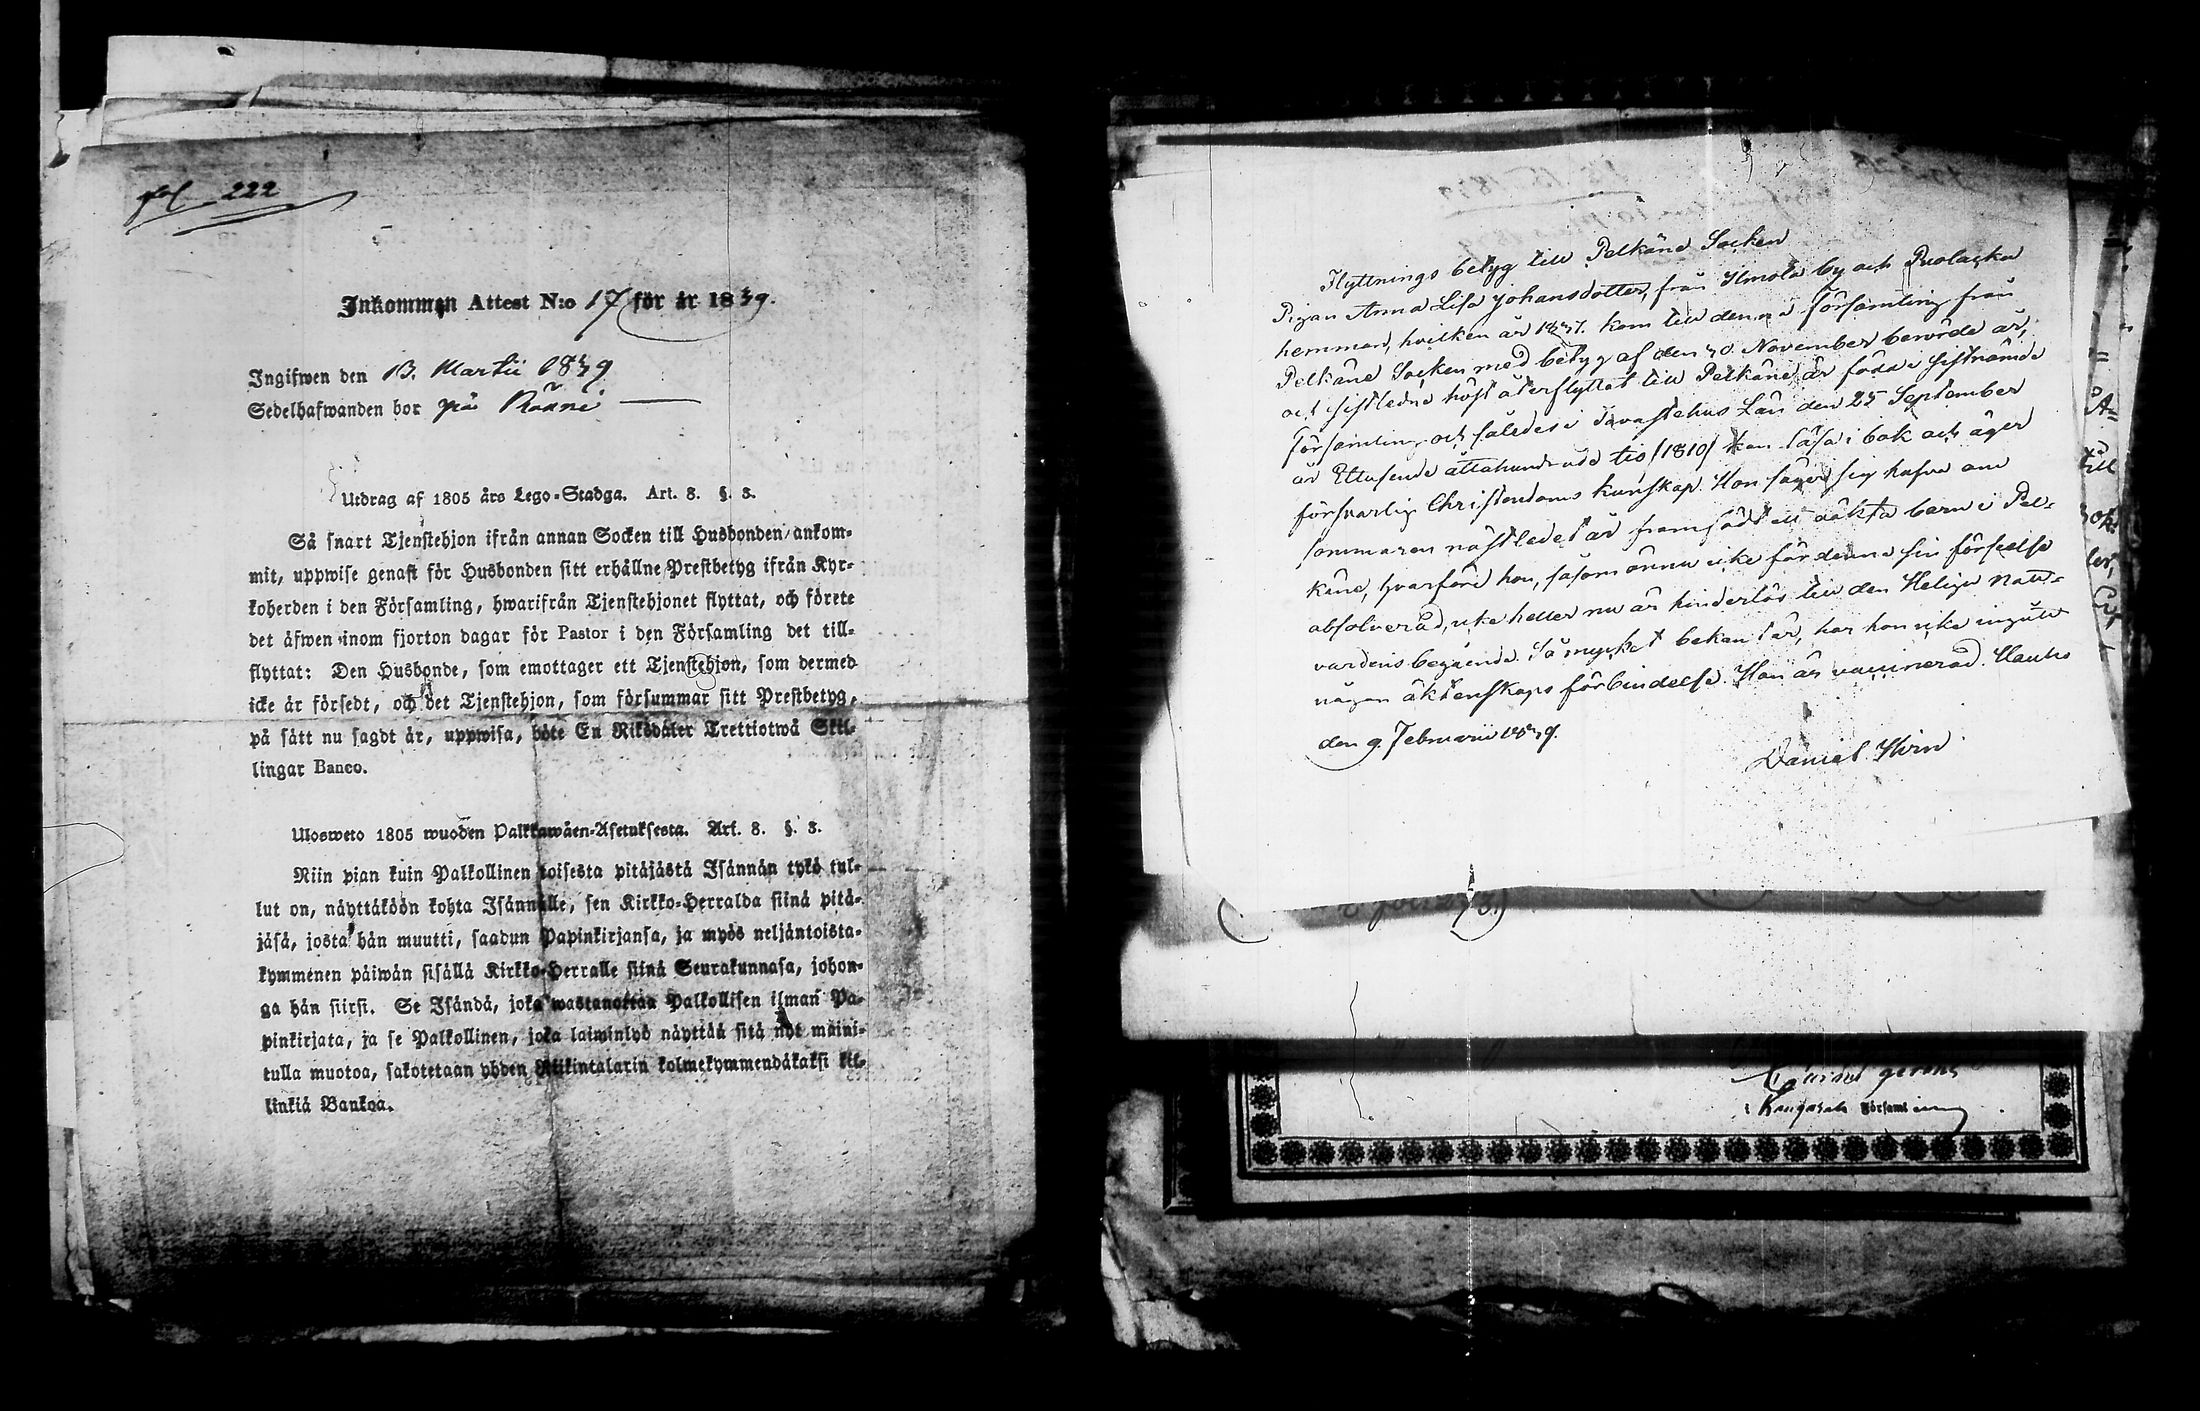 fol 222
Inkommen Attest N:o 17 för år 1839.
Ingifwen den 13. Martii 1839
Sedelhafwanden bor på Räänü
Utdrag af 1805 års Lego-Stadga. Art. 8. §. 3.
Så snart Tjenstehjon ifrån annan Socken till Husbonden ankom-
mit, uppwise genast för Husbonden sitt erhållne Prestbetyg ifrån Kyr-
koherden i den Församling, hwarifrån Tjenstehjonet flyttat, och förete
det äfwen inom fjorton dagar för Pastor i den Församling det till-
flyttat: Den Husbonde, som emottager ett Tjenstehjon, som dermed
icke är försedt, och det Tjenstehjon, som försummar sitt Prestbetyg,
på sätt nu sagdt är, uppwisa, böte En Riksdaler Trettiotwå Skil-
lingar Banco.
Ulosweto 1805 wuoden Palkkawäen-Asetuksesta. Art. 8. §. 3.
Niin pian kuin Palkollinen toisesta pitäjästä Isännän tykö tul-
lut on, näyttäköön kohta Isännälle, sen Kirkko-Herralda siinä pitä-
jäsä, josta hän muutti, saadun Papinkirjansa, ja myös neljäntoista-
kymmenen päiwän sisällä Kirkko-Herralle siinä Seurakunnasa, johon-
ga hän siirsi. Se Isändä, joka wastanottaa Palkollisen ilman Pa-
pinkirjata, ja se Palkollinen, joka laiminlyö näyttää sitä nyt maini-
tulla muotoa, sakotetaan yhden Riikintalarin kolmekymmendäkaksi kil-
linkiä Bankoa.
Flyttnings betyg till Pelkäne Socken
Pigan Anna Lisa Johansdotter, från Ilmola by och Puolacka
hemman, hvilken år 1837. kom till denna församling från
Pelkäne Socken med betyg af den 30. November berörde år,
och sistledne höst återflyttat till Pelkäne är född i sistnämde
församling och således i Tavastehus Län den 25 September
år Ettusende åttahundrade tio /1810/ kan läsa i bok och äger
försvarlig Christendoms kunskap. Hon säger sig hafva om
sommaren nästledet år framfödt ett oäkta barn i Pel-
käne, hvarföre hon, såsom ännu icke för denna sin förseelse
absolverad, icke heller nu är hinderlös till den Heliga Natt-
vardens begående. Så mycket bekant är, har hon icke ingått
någon äktenskaps förbindelse. Hon är vaccinerad. Hauho
den 9. Februarii 1839.
Daniel Hirn
i Kangasala Församling